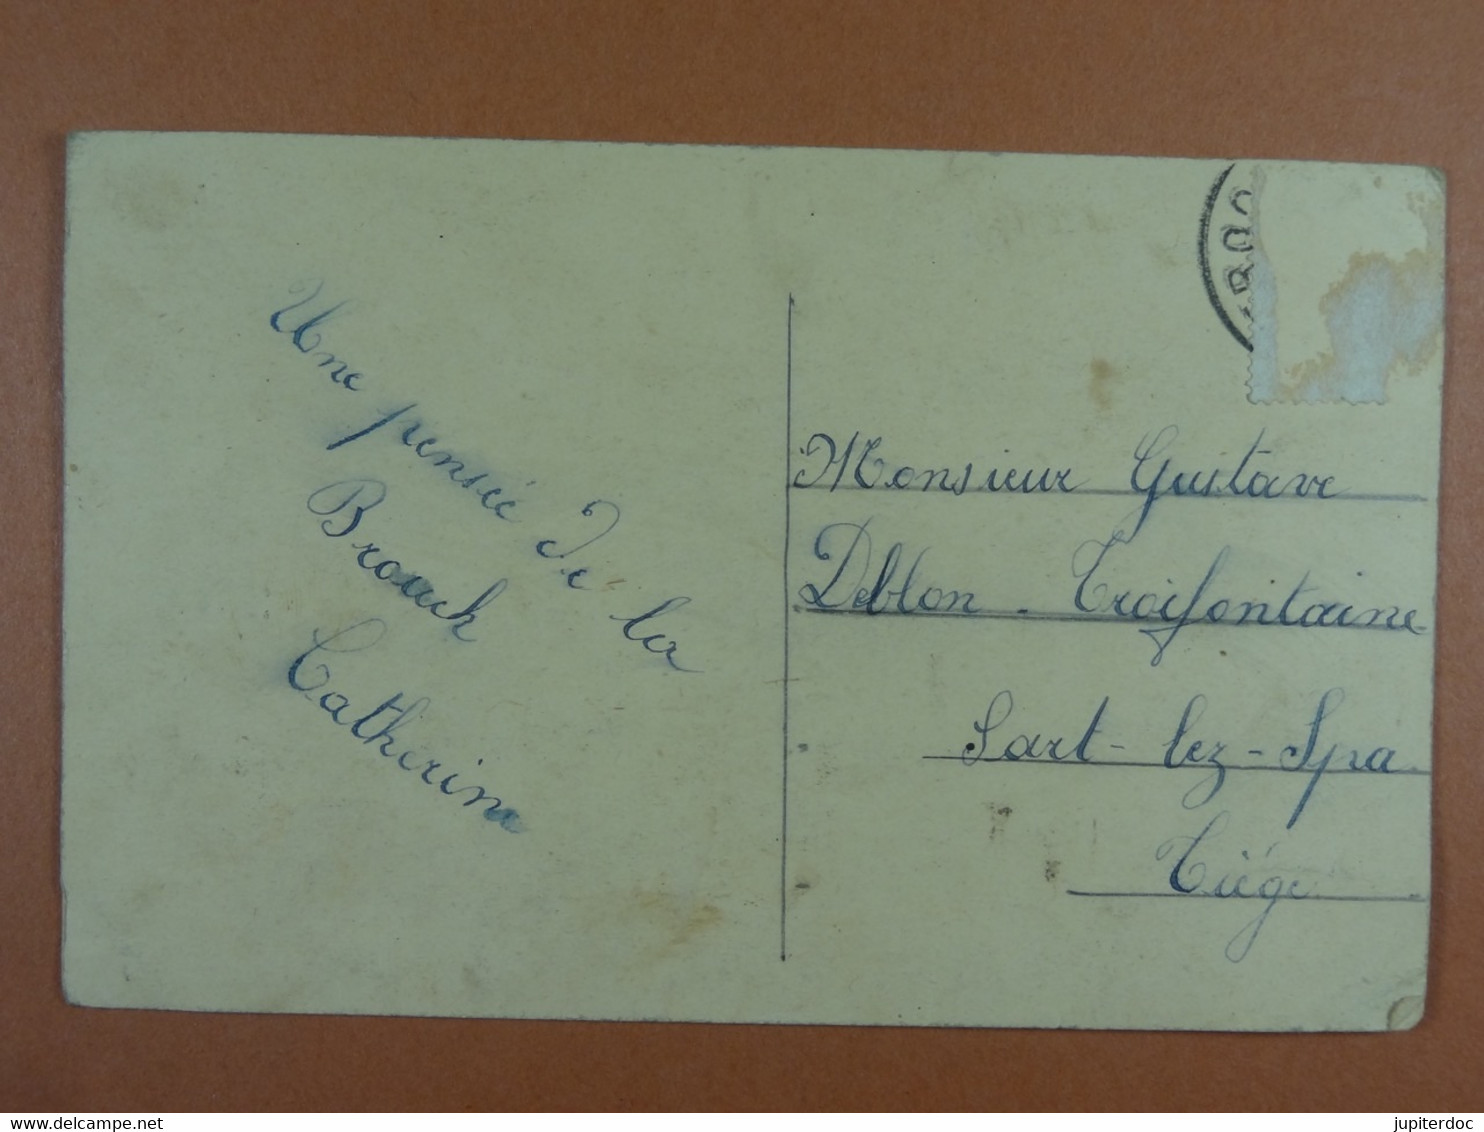 Une pensée de la
Brouck
Catherine
Monsieur Gustave
Deblon - Troifontaine
Sart-lez-Spa
Tiége
delcampe.net
jupiterdoc